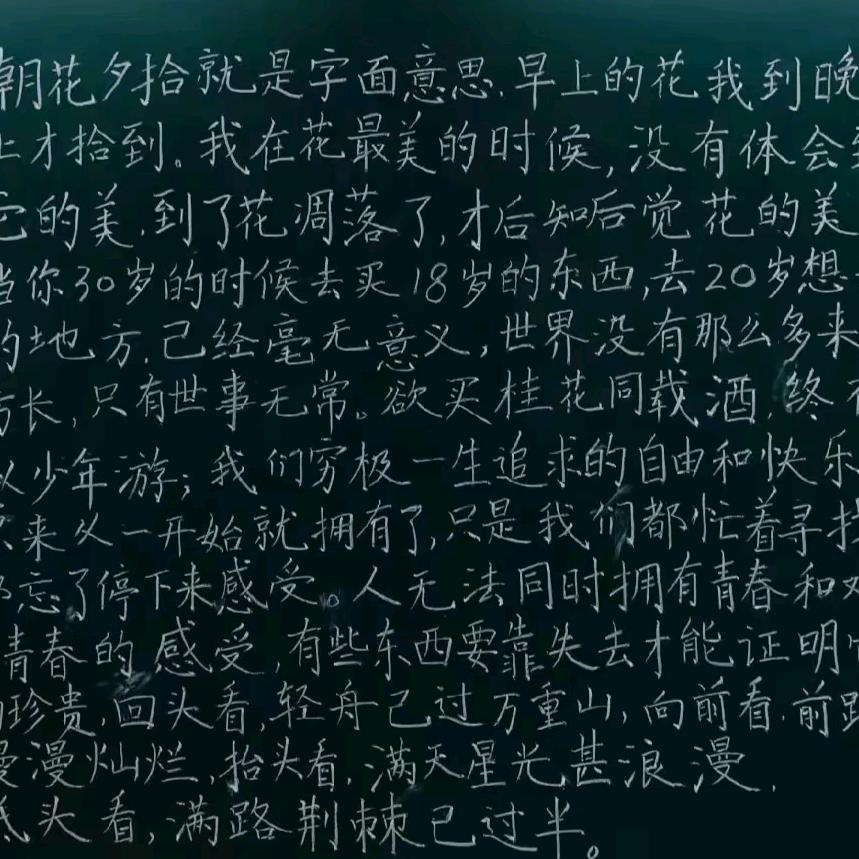 朝花夕拾就是字面意思.早上的花我到晚
上才拾到。我在花最美的时候,没有体会到
它的美.到了花凋落了,才后知后觉花的美
当你30岁的时候去买18岁的东西,去20岁想
的地方.已经毫无意义,世界没有那么多来
方长,只有世事无常。欲买桂花同载酒.终不
似少年游;我们穷极一生追求的自由和快乐
原来从一开始就拥有了,只是我们都忙着寻找
都忘了停下来感受。人无法同时拥有青春和对
青春的感受,有些东西要靠失去才能证明它
的珍贵,回头看,轻舟已过万重山,向前看.前路
漫漫灿烂,抬头看.满天星光甚浪漫.
低头看,满路荆棘已过半。